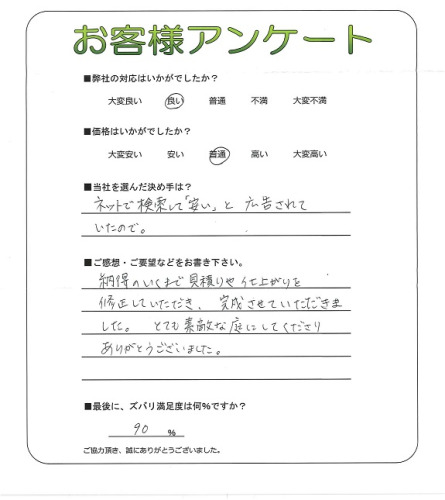 お客様アンケート
■弊社の対応はいかがでしたか?
大変良い 良い 普通 不満 大変不満
■価格はいかがでしたか?
大変安い 安い 普通 高い 大変高い
■当社を選んだ決め手は?
ネットで検索して「安い」と 広告されて
いたので。
■ご感想・ご要望などをお書き下さい。
納得のいくまで見積りや仕上がりを
修正していただき、完成させていただきま
した。 とても素敵な庭にしてくださり
ありがとうございました。
■最後に、ズバリ満足度は何%ですか?
90 %
ご協力頂き、誠にありがとうございました。